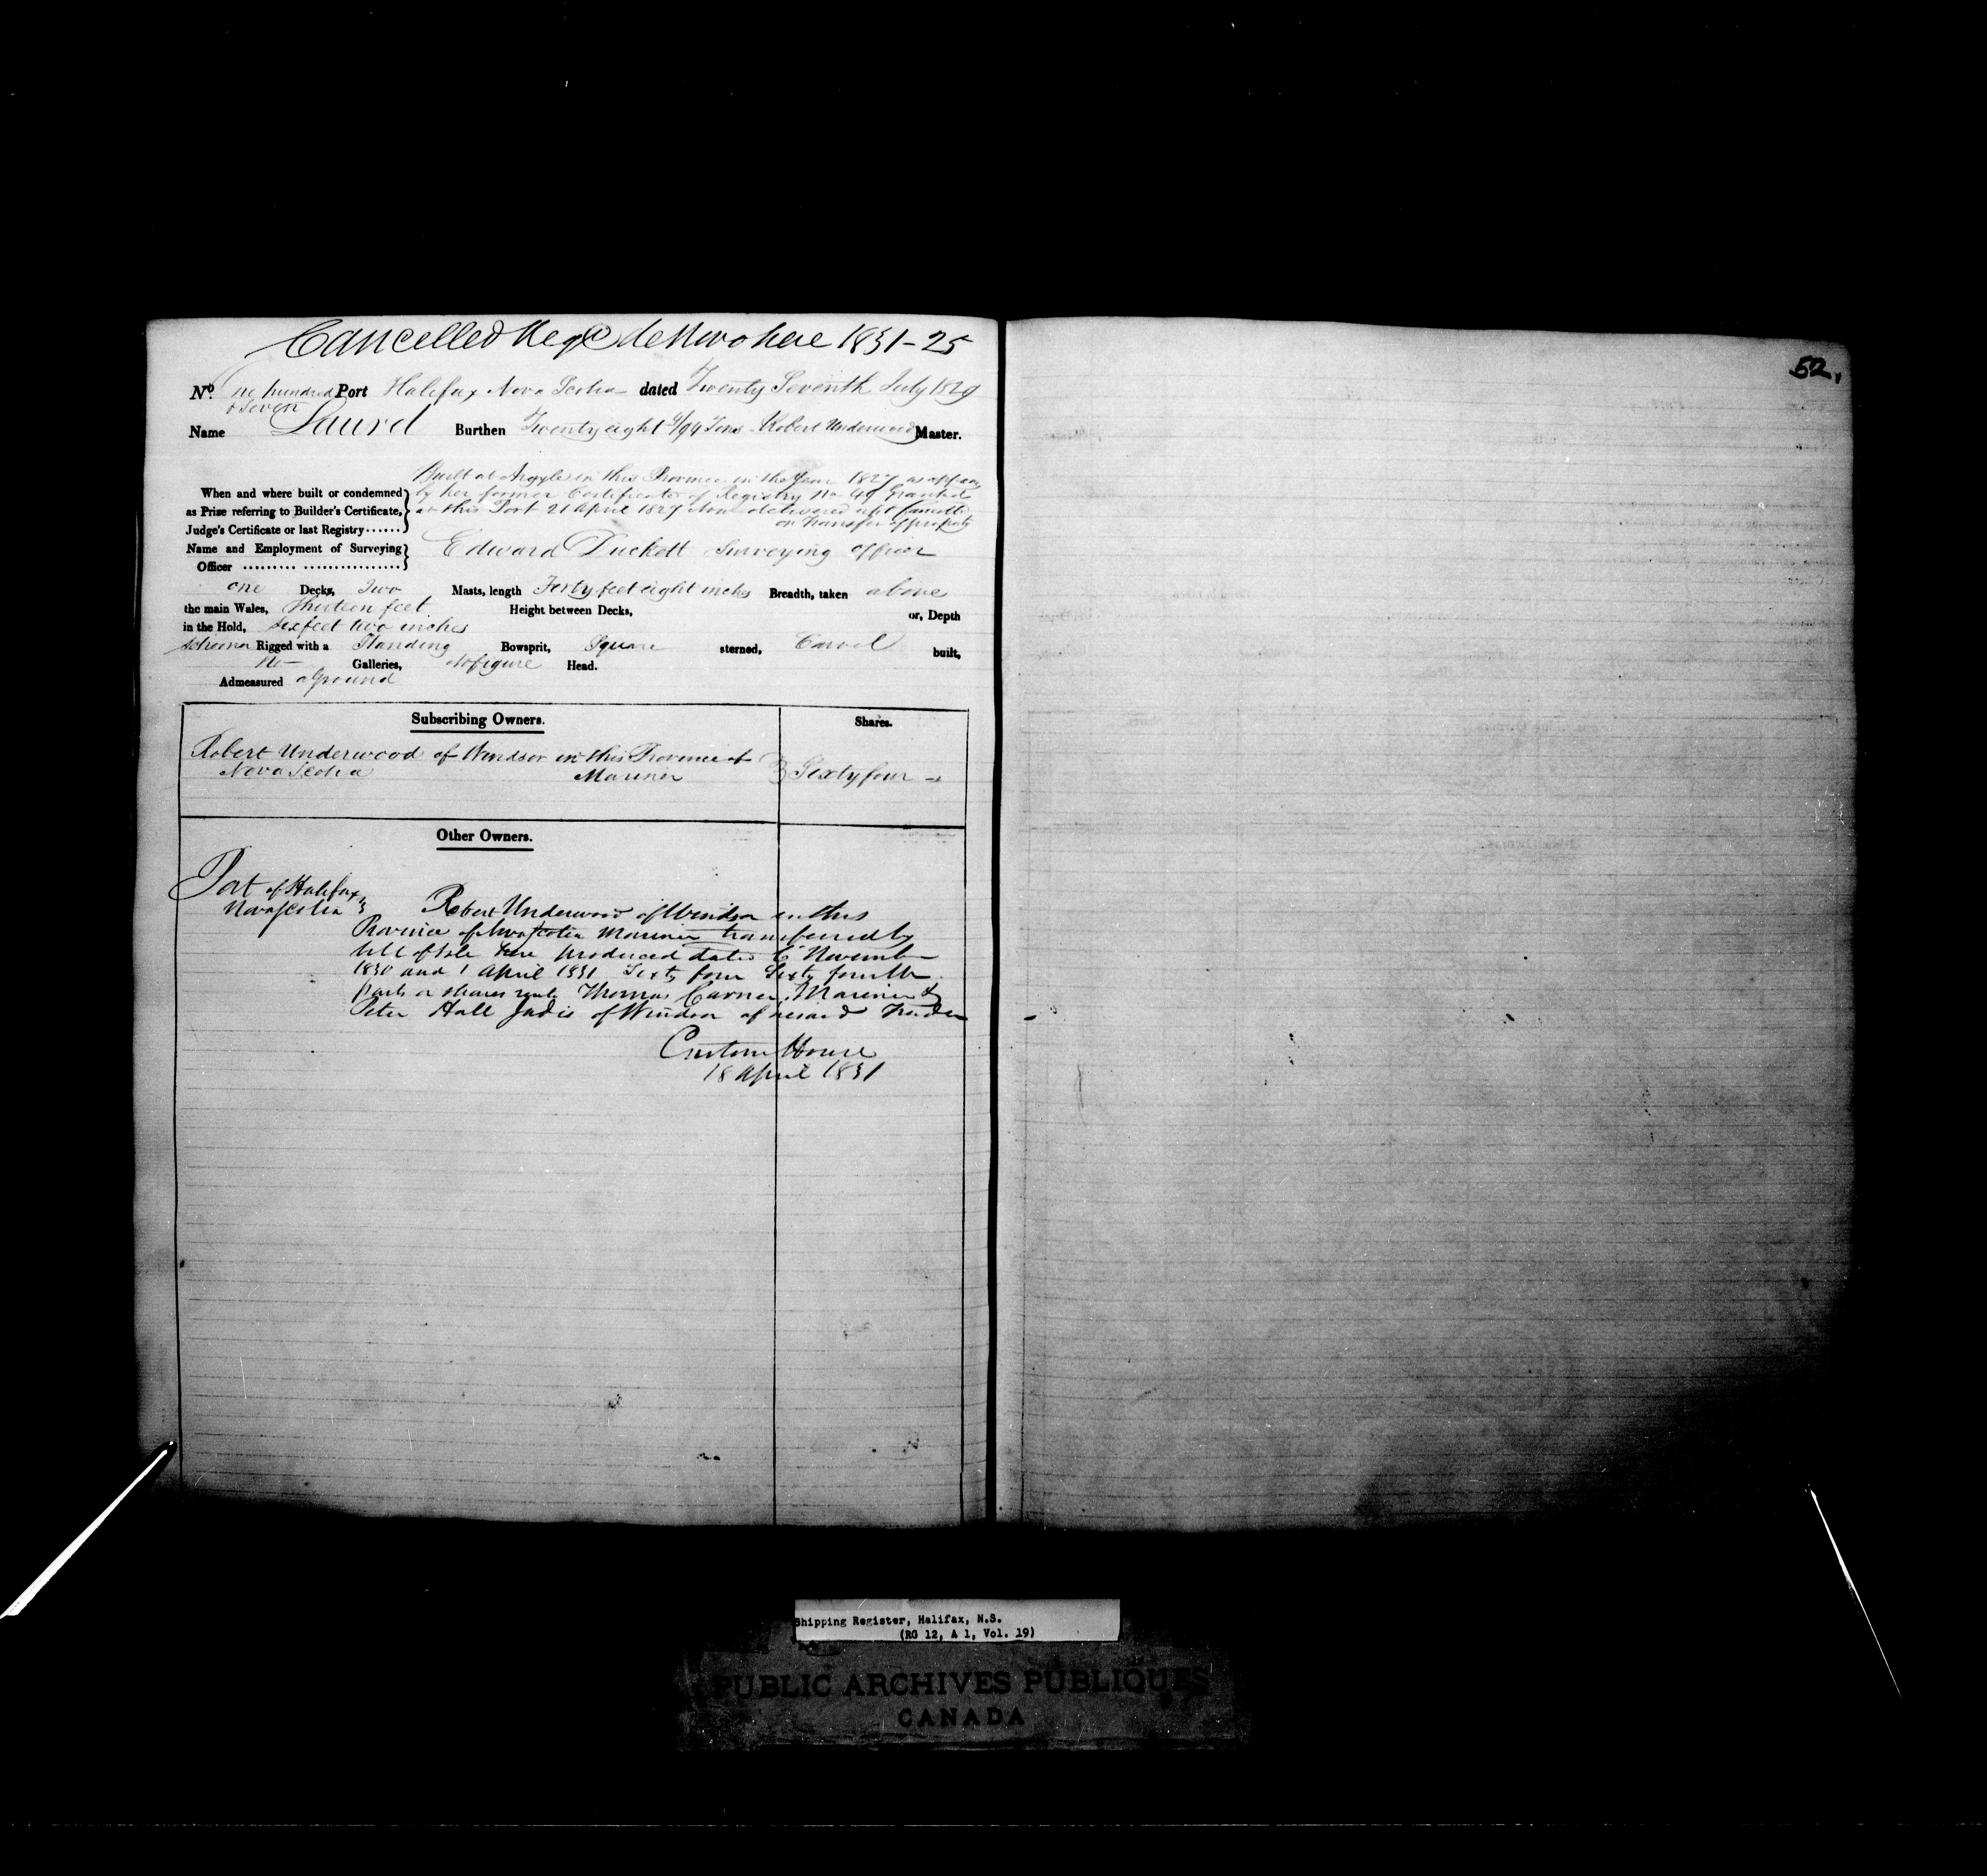 Cancelled Reg'd de Novo here 1831-25
52.
No. One hundred Port Halifax Nova Scotia dated Twenty Seventh July 1829
& Seven
Name Laurel Burthen Twenty eight 4/94 Tons Robert Underwood Master.
Built at Argyle in this Province in the Year 1827 as appears
When and where built or condemned by her former Certificate of Registry No 49 Granted
as Prize referring to Builder's Certificate, at this Port 21 April 1829 Now delivered up & Cancelled
Judge's Certificate or last Registry...... on Transfer of property
Name and Employment of Surveying Edward Duckett Surveying officer
Officer ......... ................
one Decks, Two Masts, length Forty feet eight inches Breadth, taken above
the main Wales, Thirteen feet Height between Decks, or, Depth
in the Hold, six feet two inches
Schooner Rigged with a Standing Bowsprit, Square sterned, Carvel built,
No Galleries, No figure Head.
Admeasured aground
Subscribing Owners. Shares.
Robert Underwood of Windsor in this Province of
Nova Scotia Mariner } Sixty four
Other Owners.
Port of Halifax
Nova Scotia } Robert Underwood of Windsor in this
Province of Nova Scotia Mariner transferred by
bill of sale here produced dated 6 November
1830 and 1 April 1831 Sixty four Sixty fourth
parts or shares unto Thomas Mariner &
Peter Hall of Windsor aforesaid Trader
Custom House
18 April 1831
Shipping Register, Halifax, N.S.
(RG 12, A 1, Vol. 19)
PUBLIC ARCHIVES PUBLIQUES
CANADA